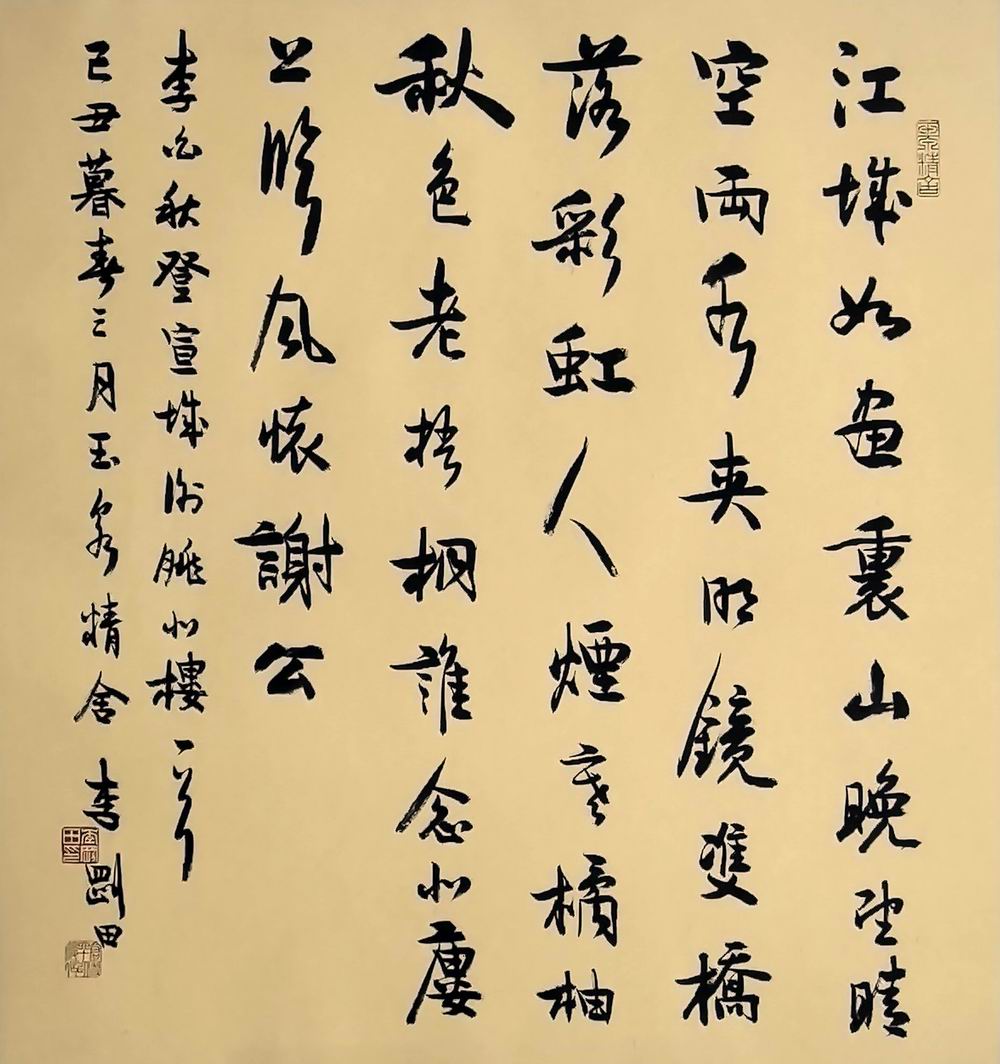 江城如画裏山晚望晴
空兩水夾明鏡雙橋
落彩虹人煙寒橘柚
秋色老梧桐誰念北廔
上臨風懷謝公
李白秋登宣城謝朓北樓一首
己丑暮春三月玉泉精舍李剛田